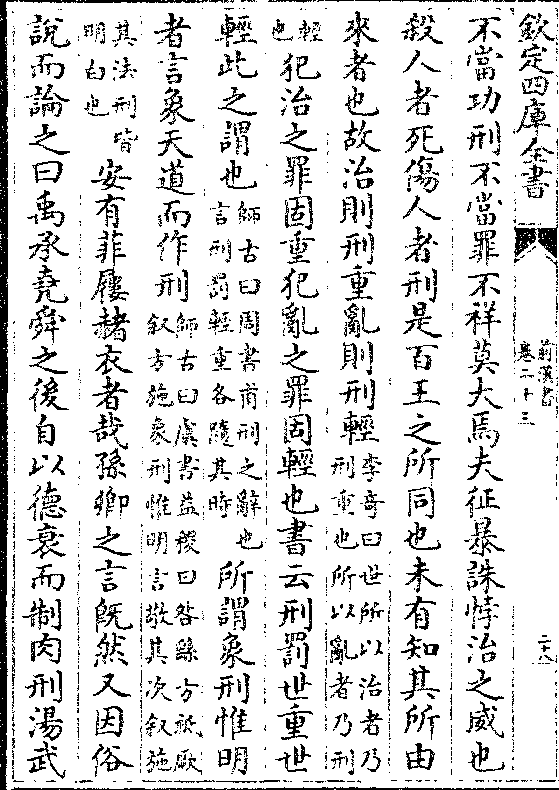 欽定四庫全書
前漢書
卷二十三
二十八
不當功刑不當罪不祥莫大焉夫征暴誅悖治之威也
殺人者死傷人者刑是百王之所同也未有知其所由
來者也故治則刑重亂則刑輕李奇曰世所以治者乃刑重也所以亂者乃刑
輕也犯治之罪固重犯亂之罪固輕也書云刑罰世重世
輕此之謂也師古曰周書甫刑之辭也言刑罰輕重各隨其時所謂象刑惟明
者言象天道而作刑師古曰虞書益稷曰咎繇方祗厥叙方施象刑惟明言敬其次叙施
其法刑皆明白也安有菲屨赭衣者哉孫卿之言既然又因俗
說而論之曰禹承堯舜之後自以德衰而制肉刑湯武